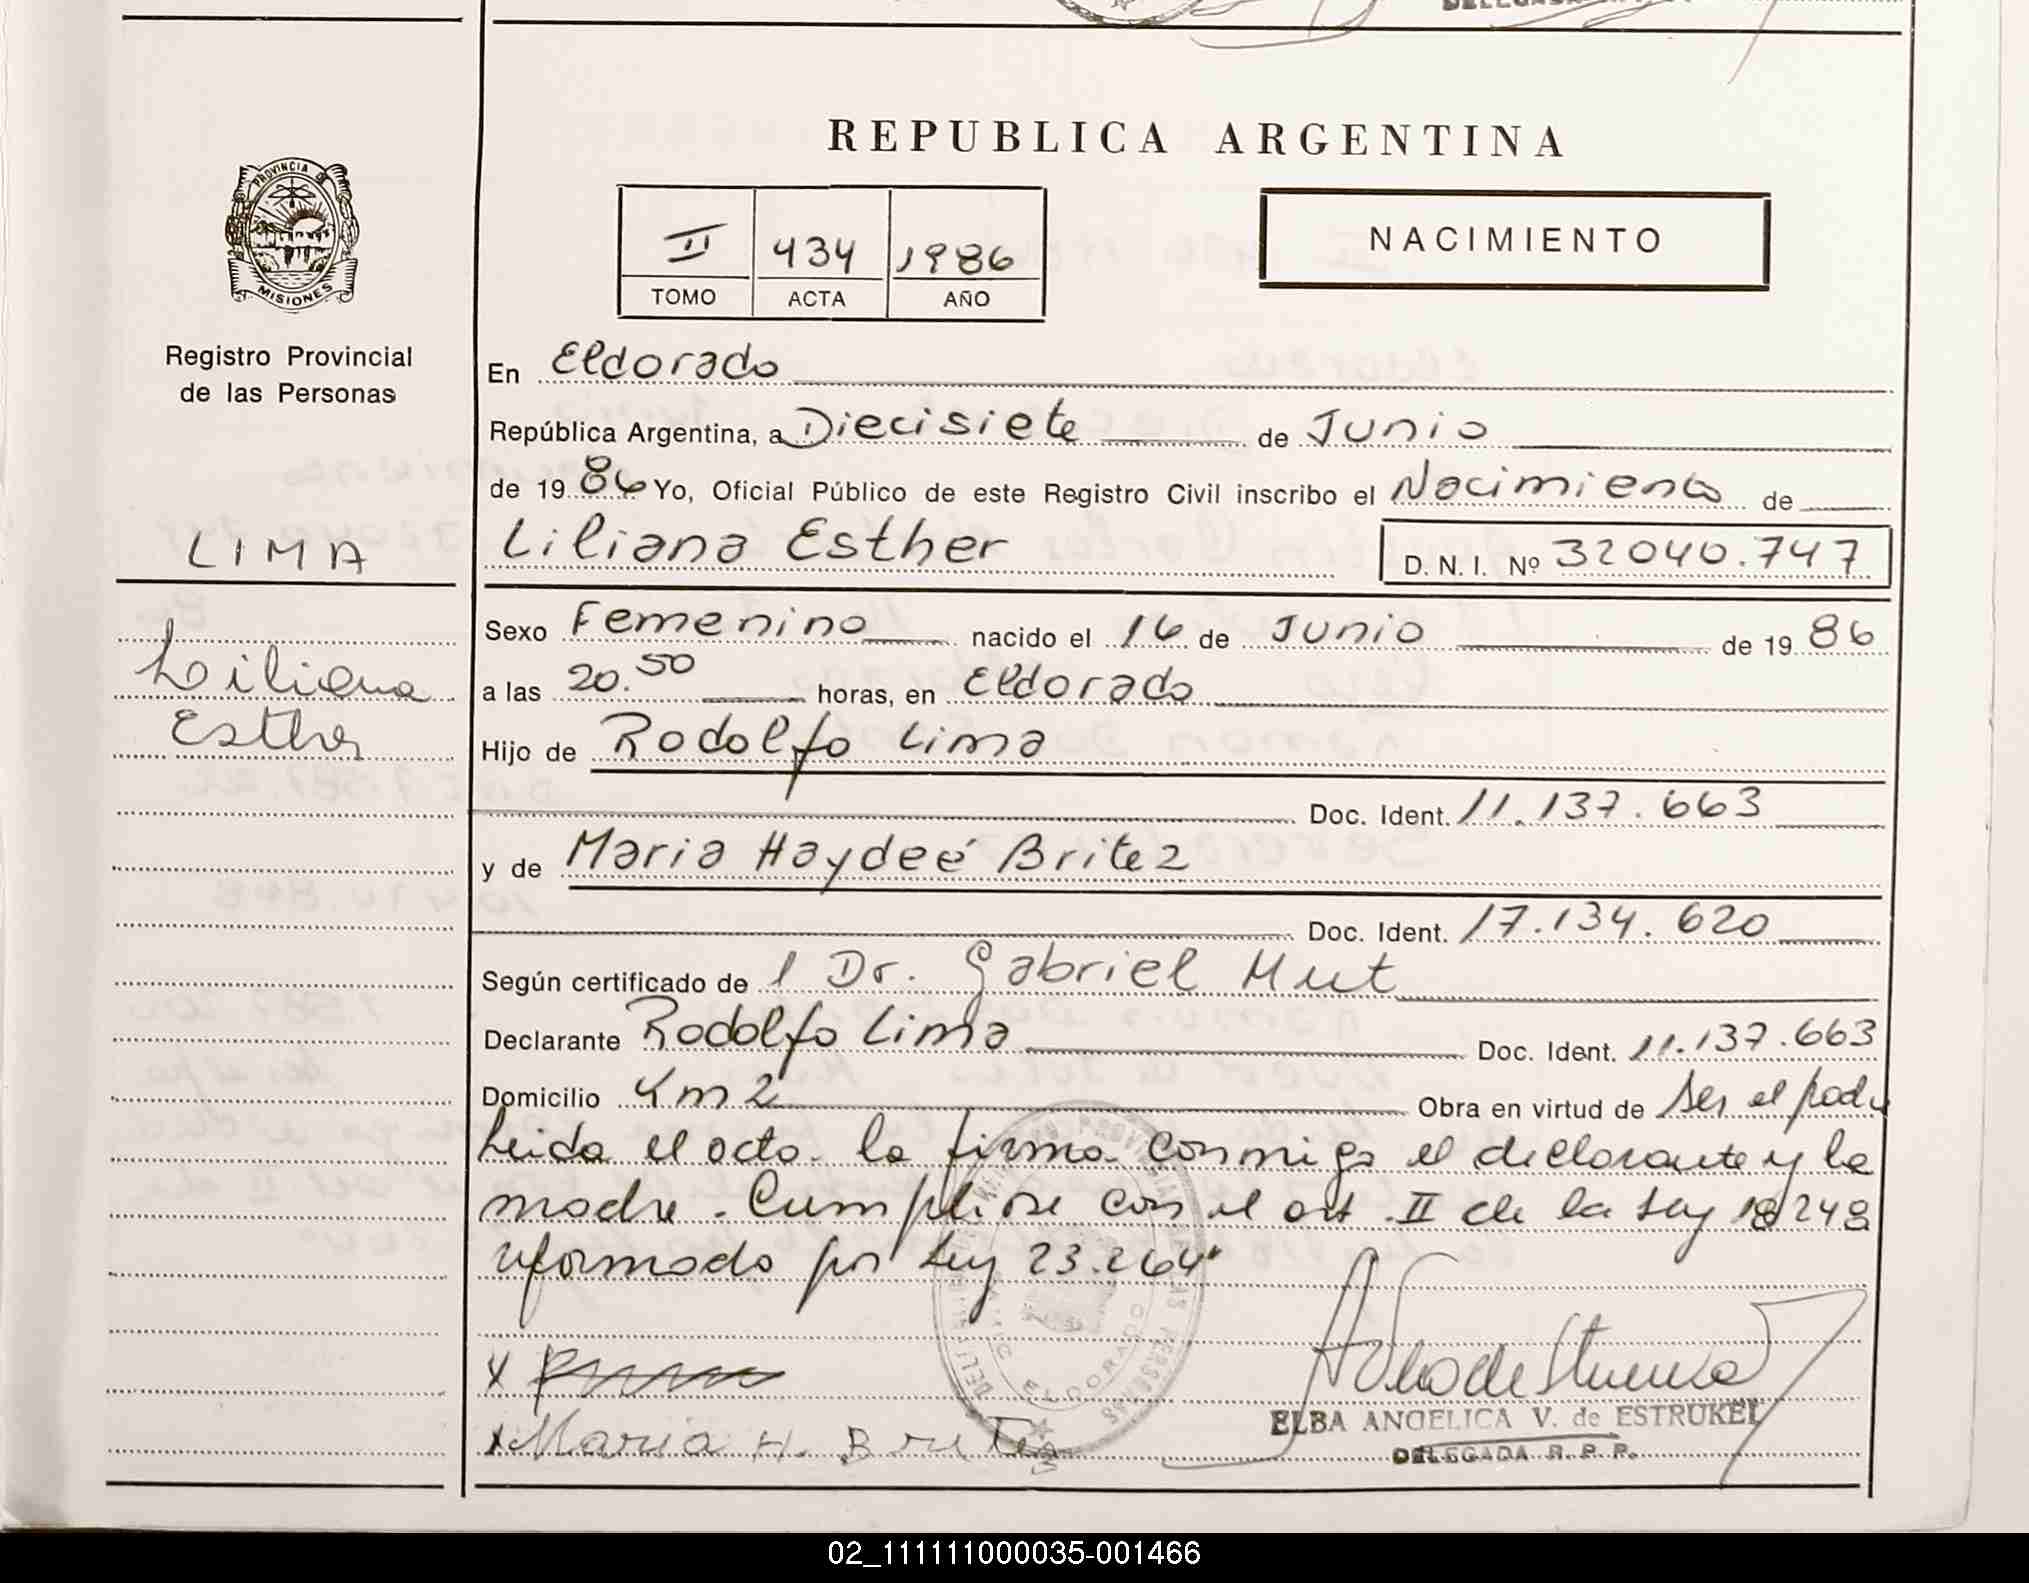 REPUBLICA ARGENTINA
PROVINCIA DE
MISIONES
Registro Provincial
de las Personas
II 434 1986
TOMO ACTA AÑO
NACIMIENTO
En Eldorado
República Argentina, a Diecisiete de Junio
de 1986 Yo, Oficial Público de este Registro Civil inscribo el Nacimiento de
LIMA
Liliana Esther
D. N. I. Nº 32040.747
Liliana
Esther
Sexo Femenino nacido el 16 de Junio de 1986
a las 20.50 horas, en Eldorado
Hijo de Rodolfo Lima
Doc. Ident. 11.137.663
y de Maria Haydeé Britez
Doc. Ident. 17.134.620
Según certificado de l Dr. Gabriel Mut
Declarante Rodolfo Lima Doc. Ident. 11.137.663
Domicilio Km 2 Obra en virtud de ser el padre
Leida el acta la firma conmigo el declarante y la
madre. Cumpliose con el art. II de la Ley 18248
reformado por Ley 23.264
X
x Maria H. Britez
ELBA ANGELICA V. de ESTRUKEL
DELEGADA R. P. P.
02_111111000035-001466